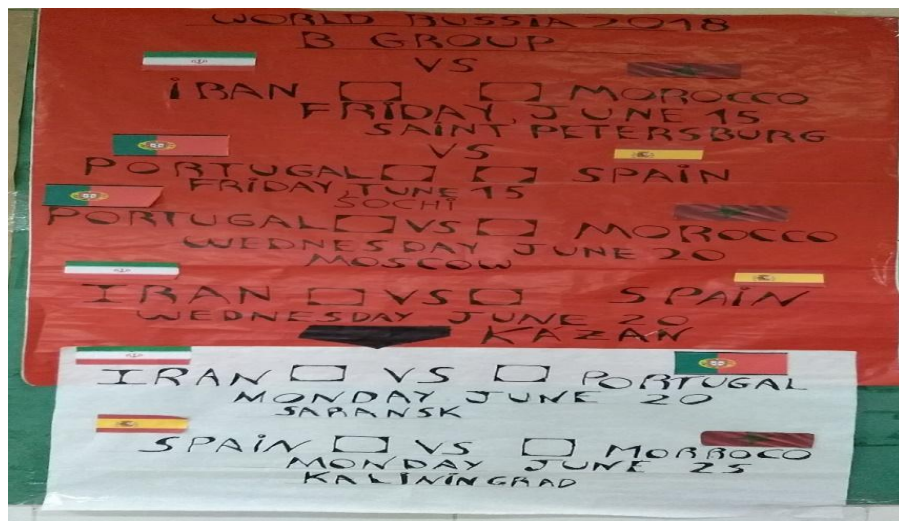 WORLD RUSSIA 2018
B GROUP
VS
IRAN MOROCCO
FRIDAY, JUNE 15
SAINT PETERSBURG
VS
PORTUGAL SPAIN
FRIDAY JUNE 15
SOCHI
PORTUGAL VS MOROCCO
WEDNESDAY JUNE 20
MOSCOW
IRAN VS SPAIN
WEDNESDAY JUNE 20
KAZAN
IRAN VS PORTUGAL
MONDAY JUNE 20
SARANSK
SPAIN VS MORROCO
MONDAY JUNE 25
KALININGRAD